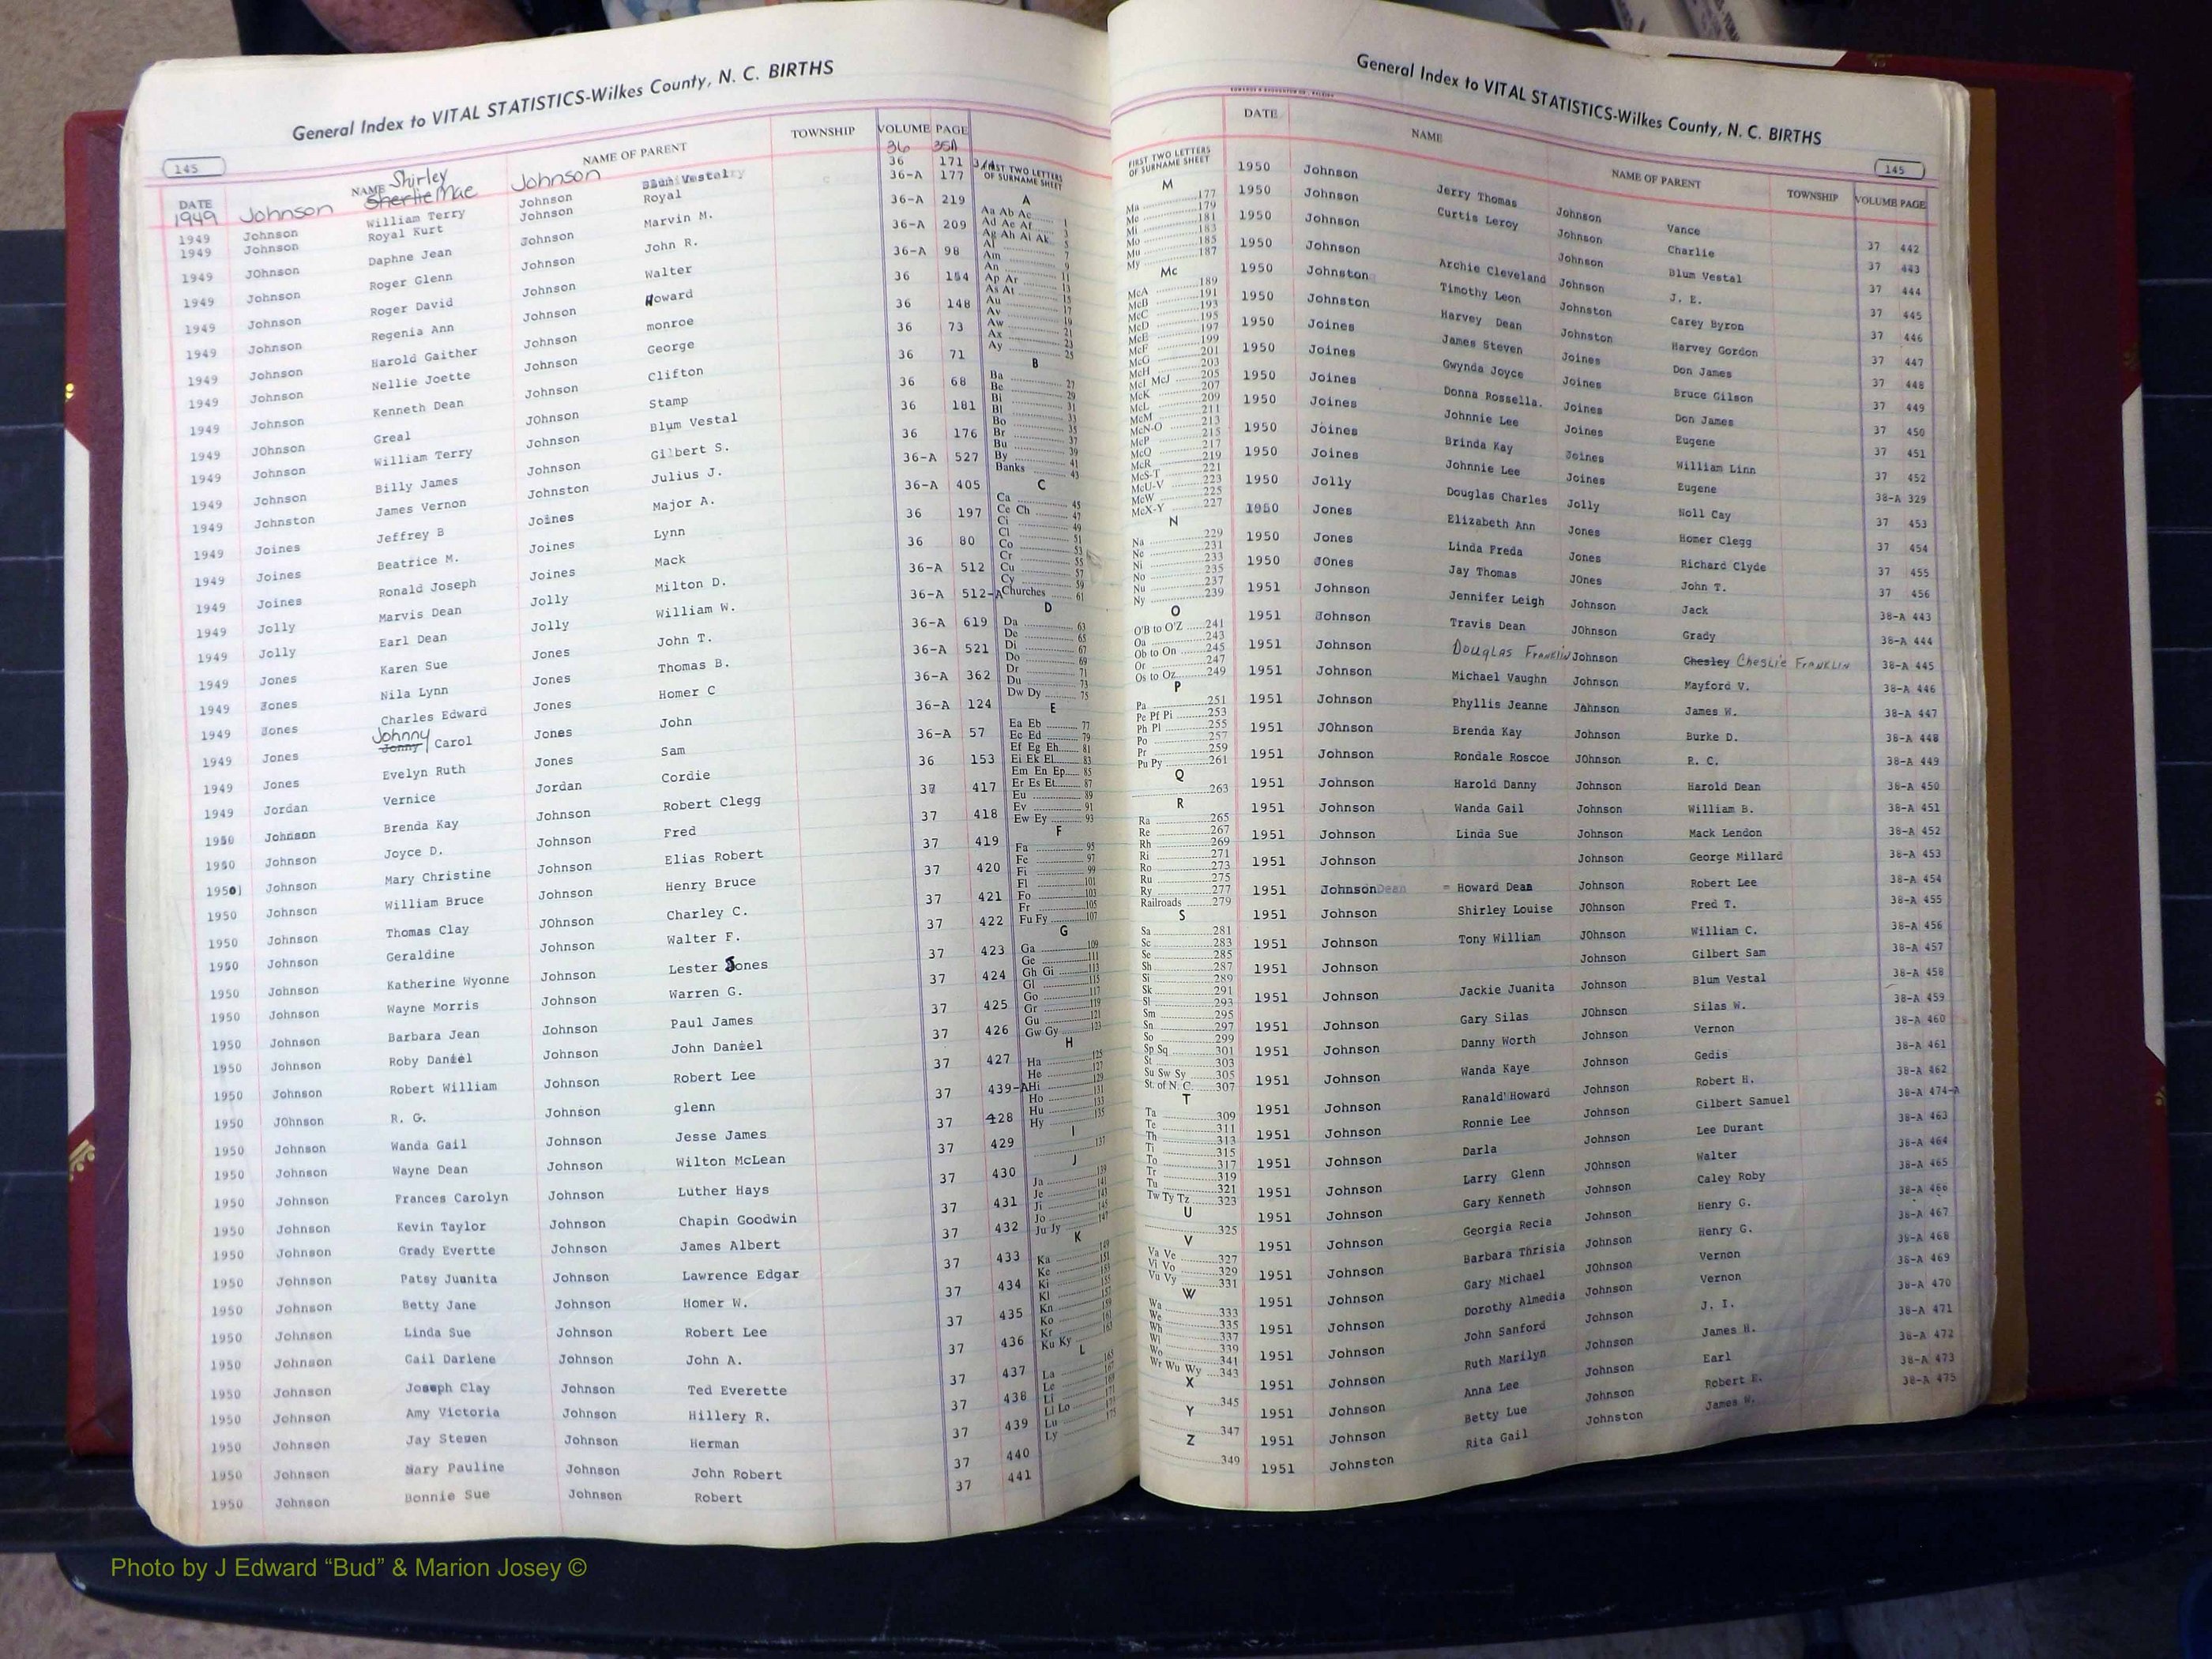 General Index to VITAL STATISTICS-Wilkes County, N. C. BIRTHS
145
DATE NAME NAME OF PARENT TOWNSHIP VOLUME PAGE
Shirley
1949 Johnson Sherlie Mae Johnson 36 35A
1949 Johnson William Terry Johnson Blum Vestal 36 171
1949 Johnson Royal Kurt Johnson Royal 36-A 177
1949 JOhnson Daphne Jean Johnson Marvin M. 36-A 219
1949 Johnson Roger Glenn Johnson John R. 36-A 209
1949 Johnson Roger David Johnson Walter 36-A 98
1949 Johnson Regenia Ann Johnson Howard 36 154
1949 Johnson Harold Gaither Johnson monroe 36 148
1949 Johnson Nellie Joette Johnson George 36 73
1949 Johnson Kenneth Dean Johnson Clifton 36 71
1949 JOhnson Greal JOhnson Stamp 36 68
1949 Johnson William Terry Johnson Blum Vestal 36 181
1949 Johnson Billy James Johnson Gilbert S. 36 176
1949 Johnston James Vernon Johnston Julius J. 36-A 527
1949 Joines Jeffrey B Joines Major A. 36-A 405
1949 Joines Beatrice M. Joines Lynn 36 197
1949 Joines Ronald Joseph Joines Mack 36 80
1949 Jolly Marvis Dean Jolly Milton D. 36-A 512
1949 Jolly Earl Dean Jolly William W. 36-A 512-A
1949 Jones Karen Sue Jones John T. 36-A 619
1949 Jones Nila Lynn Jones Thomas B. 36-A 521
1949 Jones Charles Edward Jones Homer C 36-A 362
Johnny
1949 Jones Jonny Carol Jones John 36-A 124
1949 Jones Evelyn Ruth Jones Sam 36-A 57
1949 Jordan Vernice Jordan Cordie 36 153
1950 Johnson Brenda Kay Johnson Robert Clegg 37 417
1950 Johnson Joyce D. Johnson Fred 37 418
1950 Johnson Mary Christine Johnson Elias Robert 37 419
1950 Johnson William Bruce Johnson Henry Bruce 37 420
1950 Johnson Thomas Clay JOhnson Charley C. 37 421
1950 Johnson Geraldine Johnson Walter F. 37 422
1950 Johnson Katherine Wyonne Johnson Lester Jones 37 423
1950 Johnson Wayne Morris Johnson Warren G. 37 424
1950 Johnson Barbara Jean Johnson Paul James 37 425
1950 Johnson Roby Daniel Johnson John Daniel 37 426
1950 Johnson Robert William Johnson Robert Lee 37 427
1950 JOhnson R. G. Johnson glenn 37 439-A
1950 Johnson Wanda Gail Johnson Jesse James 37 428
1950 Johnson Wayne Dean Johnson Wilton McLean 37 429
1950 Johnson Frances Carolyn Johnson Luther Hays 37 430
1950 Johnson Kevin Taylor Johnson Chapin Goodwin 37 431
1950 Johnson Grady Evertte Johnson James Albert 37 432
1950 Johnson Patsy Juanita Johnson Lawrence Edgar 37 433
1950 Johnson Betty Jane Johnson Homer W. 37 434
1950 Johnson Linda Sue Johnson Robert Lee 37 435
1950 Johnson Gail Darlene Johnson John A. 37 436
1950 Johnson Joseph Clay Johnson Ted Everette 37 437
1950 Johnson Amy Victoria Johnson Hillery R. 37 438
1950 Johnson Jay Steven Johnson Herman 37 439
1950 Johnson Mary Pauline Johnson John Robert 37 440
1950 Johnson Bonnie Sue Johnson Robert 37 441
FIRST TWO LETTERS
OF SURNAME SHEET
A
Aa Ab Ac 1
Ad Ae Af 3
Ag Ah Ai Ak 5
Al 7
Am 9
An 11
Ap Ar 13
As At 15
Au 17
Av 19
Aw 21
Ax 23
Ay 25
B
Ba 27
Be 29
Bi 31
Bl 33
Bo 35
Br 37
Bu 39
By 41
Banks 43
C
Ca 45
Ce Ch 47
Ci 49
Cl 51
Co 53
Cr 55
Cu 57
Cy 59
Churches 61
D
Da 63
De 65
Di 67
Do 69
Dr 71
Du 73
Dw Dy 75
E
Ea Eb 77
Ec Ed 79
Ef Eg Eh 81
Ei Ek El 83
Em En Ep 85
Er Es Et 87
Eu 89
Ev 91
Ew Ey 93
F
Fa 95
Fe 97
Fi 99
Fl 101
Fo 103
Fr 105
Fu Fy 107
G
Ga 109
Ge 111
Gh Gi 113
Gl 115
Go 117
Gr 119
Gu 121
Gw Gy 123
H
Ha 125
He 127
Hi 129
Ho 131
Hu 133
Hy 135
I
137
J
Ja 139
Je 141
Ji 143
Jo 145
Ju Jy 147
K
Ka 149
Ke 151
Ki 153
Kl 155
Kn 157
Ko 159
Kr 161
Ku Ky 163
L
La 165
Le 167
Li 169
Ll Lo 171
Lu 173
Ly 175
General Index to VITAL STATISTICS-Wilkes County, N. C. BIRTHS
FIRST TWO LETTERS
OF SURNAME SHEET
M
Ma 177
Me 179
Mi 181
Mo 183
Mu 185
My 187
Mc
McA 189
McB 191
McC 193
McD 195
McE 197
McF 199
McG 201
McH 203
McI McJ 205
McK 207
McL 209
McM 211
McN-O 213
McP 215
McQ 217
McR 219
McS-T 221
McU-V 223
McW 225
McX-Y 227
N
Na 229
Ne 231
Ni 233
No 235
Nu 237
Ny 239
O
O'B to O'Z 241
Oa 243
Ob to On 245
Or 247
Os to Oz 249
P
Pa 251
Pe Pf Pi 253
Ph Pl 255
Po 257
Pr 259
Pu Py 261
Q
263
R
Ra 265
Re 267
Rh 269
Ri 271
Ro 273
Ru 275
Ry 277
Railroads 279
S
Sa 281
Sc 283
Se 285
Sh 287
Si 289
Sk 291
Sl 293
Sm 295
Sn 297
So 299
Sp Sq 301
St 303
Su Sw Sy 305
St. of N. C. 307
T
Ta 309
Te 311
Th 313
Ti 315
To 317
Tr 319
Tu 321
Tw Ty Tz 323
U
325
V
Va Ve 327
Vi Vo 329
Vu Vy 331
W
Wa 333
We 335
Wh 337
Wi 339
Wo 341
Wr Wu Wy 343
X
345
Y
347
Z
349
145
DATE NAME NAME OF PARENT TOWNSHIP VOLUME PAGE
1950 Johnson Jerry Thomas Johnson Vance 37 442
1950 Johnson Curtis Leroy Johnson Charlie 37 443
1950 Johnson Johnson Blum Vestal 37 444
1950 Johnson Archie Cleveland Johnson J. E. 37 445
1950 Johnston Timothy Leon Johnston Carey Byron 37 446
1950 Johnston Harvey Dean Johnston Harvey Gordon 37 447
1950 Joines James Steven Joines Don James 37 448
1950 Joines Gwynda Joyce Joines Bruce Gilson 37 449
1950 Joines Donna Rossella. Joines Don James 37 450
1950 Joines Johnnie Lee Joines Eugene 37 451
1950 Joines Brinda Kay Joines William Linn 37 452
1950 Joines Johnnie Lee Joines Eugene 38-A 329
1950 Jolly Douglas Charles Jolly Noll Cay 37 453
1950 Jones Elizabeth Ann Jones Homer Clegg 37 454
1950 Jones Linda Freda Jones Richard Clyde 37 455
1950 JOnes Jay Thomas JOnes John T. 37 456
1951 Johnson Jennifer Leigh Johnson Jack 38-A 443
1951 Johnson Travis Dean JOhnson Grady 38-A 444
1951 Johnson Douglas Franklin Johnson Chesley Cheslie Franklin 38-A 445
1951 Johnson Michael Vaughn Johnson Mayford V. 38-A 446
1951 Johnson Phyllis Jeanne Johnson James W. 38-A 447
1951 JOhnson Brenda Kay Johnson Burke D. 38-A 448
1951 Johnson Rondale Roscoe JOhnson R. C. 38-A 449
1951 Johnson Harold Danny Johnson Harold Dean 38-A 450
1951 Johnson Wanda Gail Johnson William B. 38-A 451
1951 Johnson Linda Sue Johnson Mack Lendon 38-A 452
1951 Johnson Johnson George Millard 38-A 453
1951 Johnson Howard Dean Johnson Robert Lee 38-A 454
1951 Johnson Shirley Louise JOhnson Fred T. 38-A 455
1951 Johnson Tony William JOhnson William C. 38-A 456
1951 Johnson Johnson Gilbert Sam 38-A 457
1951 Johnson Jackie Juanita Johnson Blum Vestal 38-A 458
1951 Johnson Gary Silas JOhnson Silas W. 38-A 459
1951 Johnson Danny Worth Johnson Vernon 38-A 460
1951 Johnson Wanda Kaye Johnson Gedis 38-A 461
1951 Johnson Ranald Howard Johnson Robert H. 38-A 462
1951 Johnson Ronnie Lee Johnson Gilbert Samuel 38-A 474-A
1951 Johnson Darla Johnson Lee Durant 38-A 463
1951 Johnson Larry Glenn JOhnson Walter 38-A 464
1951 Johnson Gary Kenneth Johnson Caley Roby 38-A 465
1951 Johnson Georgia Recia Johnson Henry G. 38-A 466
1951 Johnson Barbara Thrisia Johnson Henry G. 38-A 467
1951 Johnson Gary Michael JOhnson Vernon 38-A 468
1951 Johnson Dorothy Almedia Johnson Vernon 38-A 469
1951 Johnson John Sanford Johnson J. I. 38-A 470
1951 Johnson Ruth Marilyn Johnson James H. 38-A 471
1951 Johnson Anna Lee Johnson Earl 38-A 472
1951 Johnson Betty Lue Johnson Robert E. 38-A 473
1951 Johnston Rita Gail Johnston James W. 38-A 475
Photo by J Edward “Bud” & Marion Josey ©